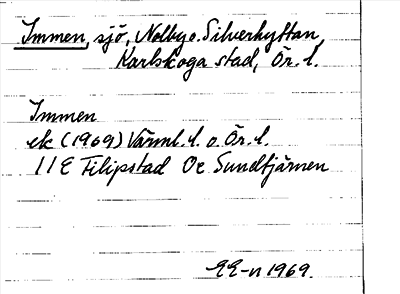 Immen, sjö, Nolby o. Silverhyttan,
Karlskoga stad, Ör. l.
Immen
ek (1969) Värml. l. o. Ör. l.
11 E Filipstad Oc Sundtjärnen
EE-n 1969.